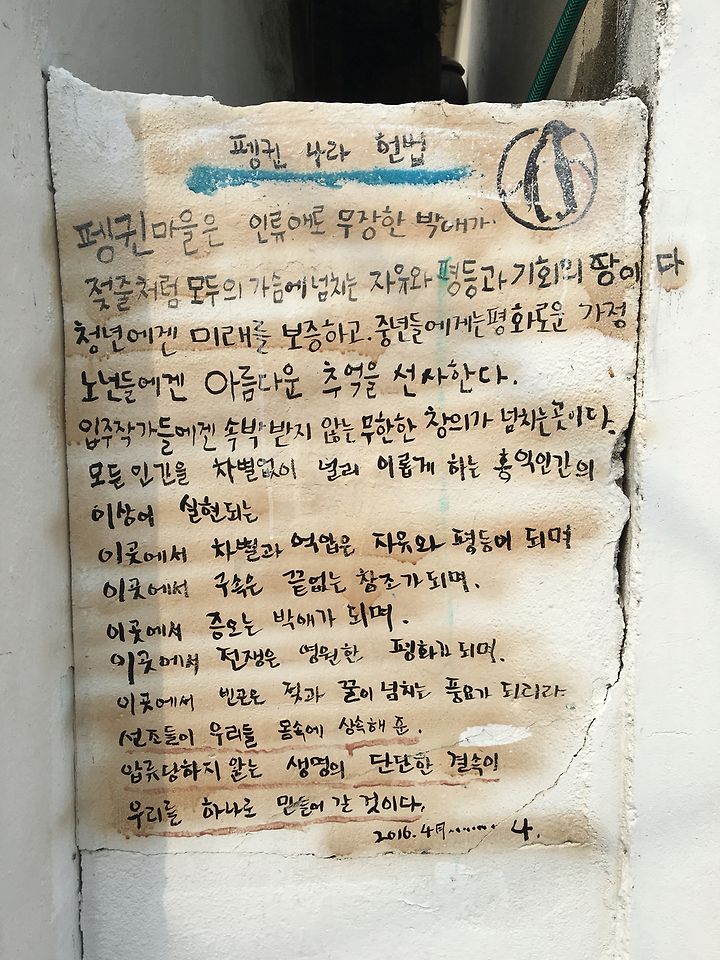 펭귄 나라 헌법
펭귄마을은 인류애로 무장한 박애가
젖줄처럼 모두의 가슴에 넘치는 자유와 평등과 기회의 땅이다
청년에겐 미래를 보증하고. 중년들에게는 평화로운 가정
노년들에겐 아름다운 추억을 선사한다.
입주작가들에겐 속박 받지 않는 무한한 창의가 넘치는 곳이다.
모든 인간을 차별없이 널리 이롭게 하는 홍익인간의
이상이 실현되는
이곳에서 차별과 억압은 자유와 평등이 되며
이곳에서 구속은 끝없는 창조가 되며.
이곳에서 증오는 박애가 되며.
이곳에서 전쟁은 영원한 평화가 되며.
이곳에서 빈곤은 젖과 꿀이 넘치는 풍요가 되리라
선조들이 우리들 몸속에 상속해 준.
압류당하지 않는 생명의 단단한 결속이
우리를 하나로 만들어 갈 것이다.
2016. 4月........ 4.